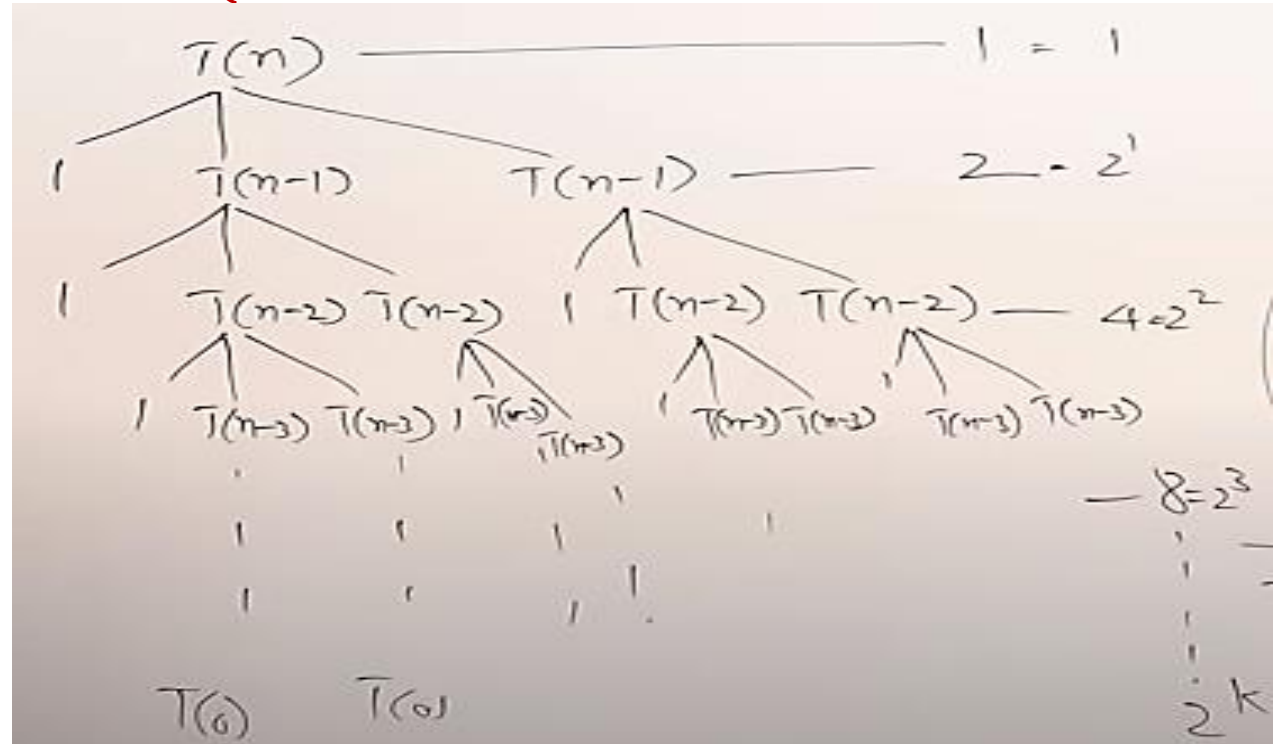 T(n) 1 = 1
1 T(n-1) T(n-1) 2 = 2¹
1 T(n-2) T(n-2) 1 T(n-2) T(n-2) 4=2²
1 T(n-3) T(n-3) 1 T(n-3) T(n-3) 1 T(n-3) T(n-3) 1 T(n-3) T(n-3)
8=2³
T(0) T(0) 2^k